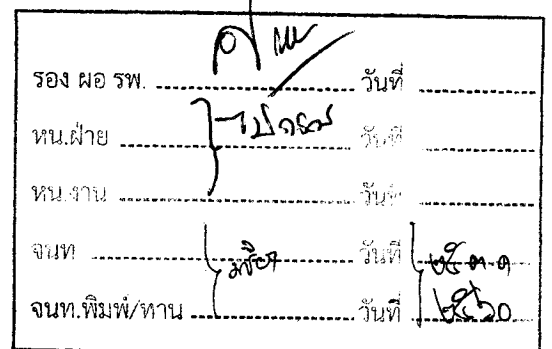 รอง ผอ รพ. วันที่
หน.ฝ่าย วันที่
หน.งาน วันที่
จนท วันที่ ๒๕ ต ค
จนท.พิมพ์/ทาน วันที่ ๒๕๖๐